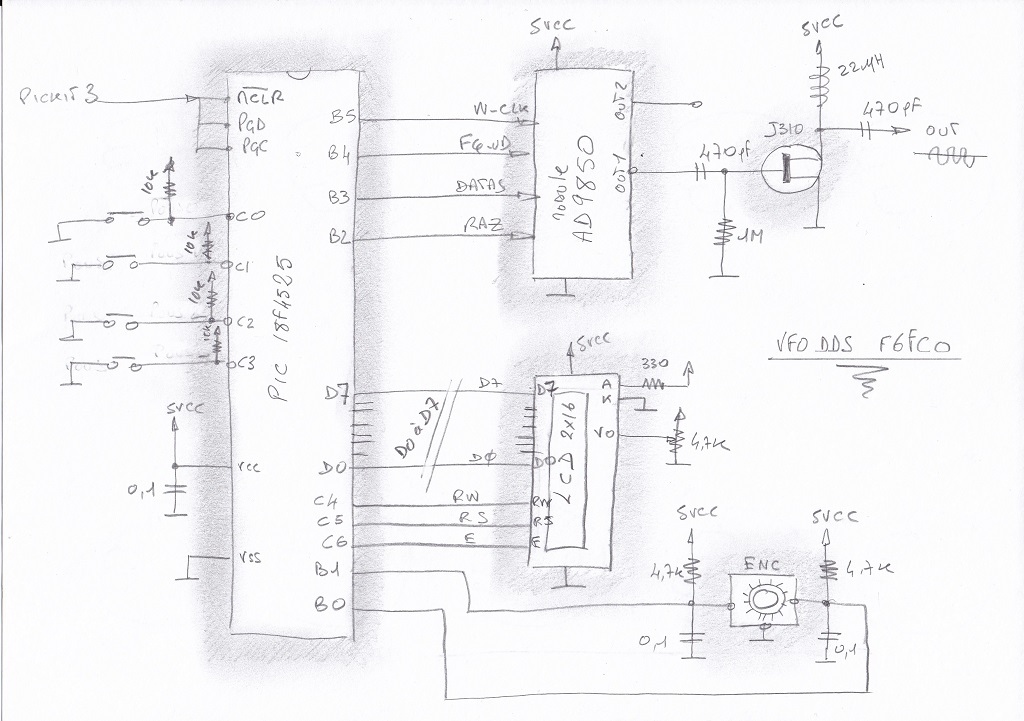 5VCC
5VCC
22µH
PICKIT 3
MCLR
PGD
PGC
B5
W-CLK
OUT2
470pF
OUT
J310
B4
FQ-UD
470pF
B3
DATAS
OUT1
module
AD9850
B2
RAZ
1M
10k
C0
10k
C1
10k
C2
10k
C3
PIC 18F4525
VFO DDS F6FCO
5VCC
330
D7
D7
D7
A
K
D0 à D7
LCD 2x16
VO
4,7K
5VCC
VCC
0,1
D0
DØ
D0
C4
RW
RW
C5
RS
RS
C6
E
E
5VCC
5VCC
VSS
B1
4,7K
ENC
4,7K
B0
0,1
0,1